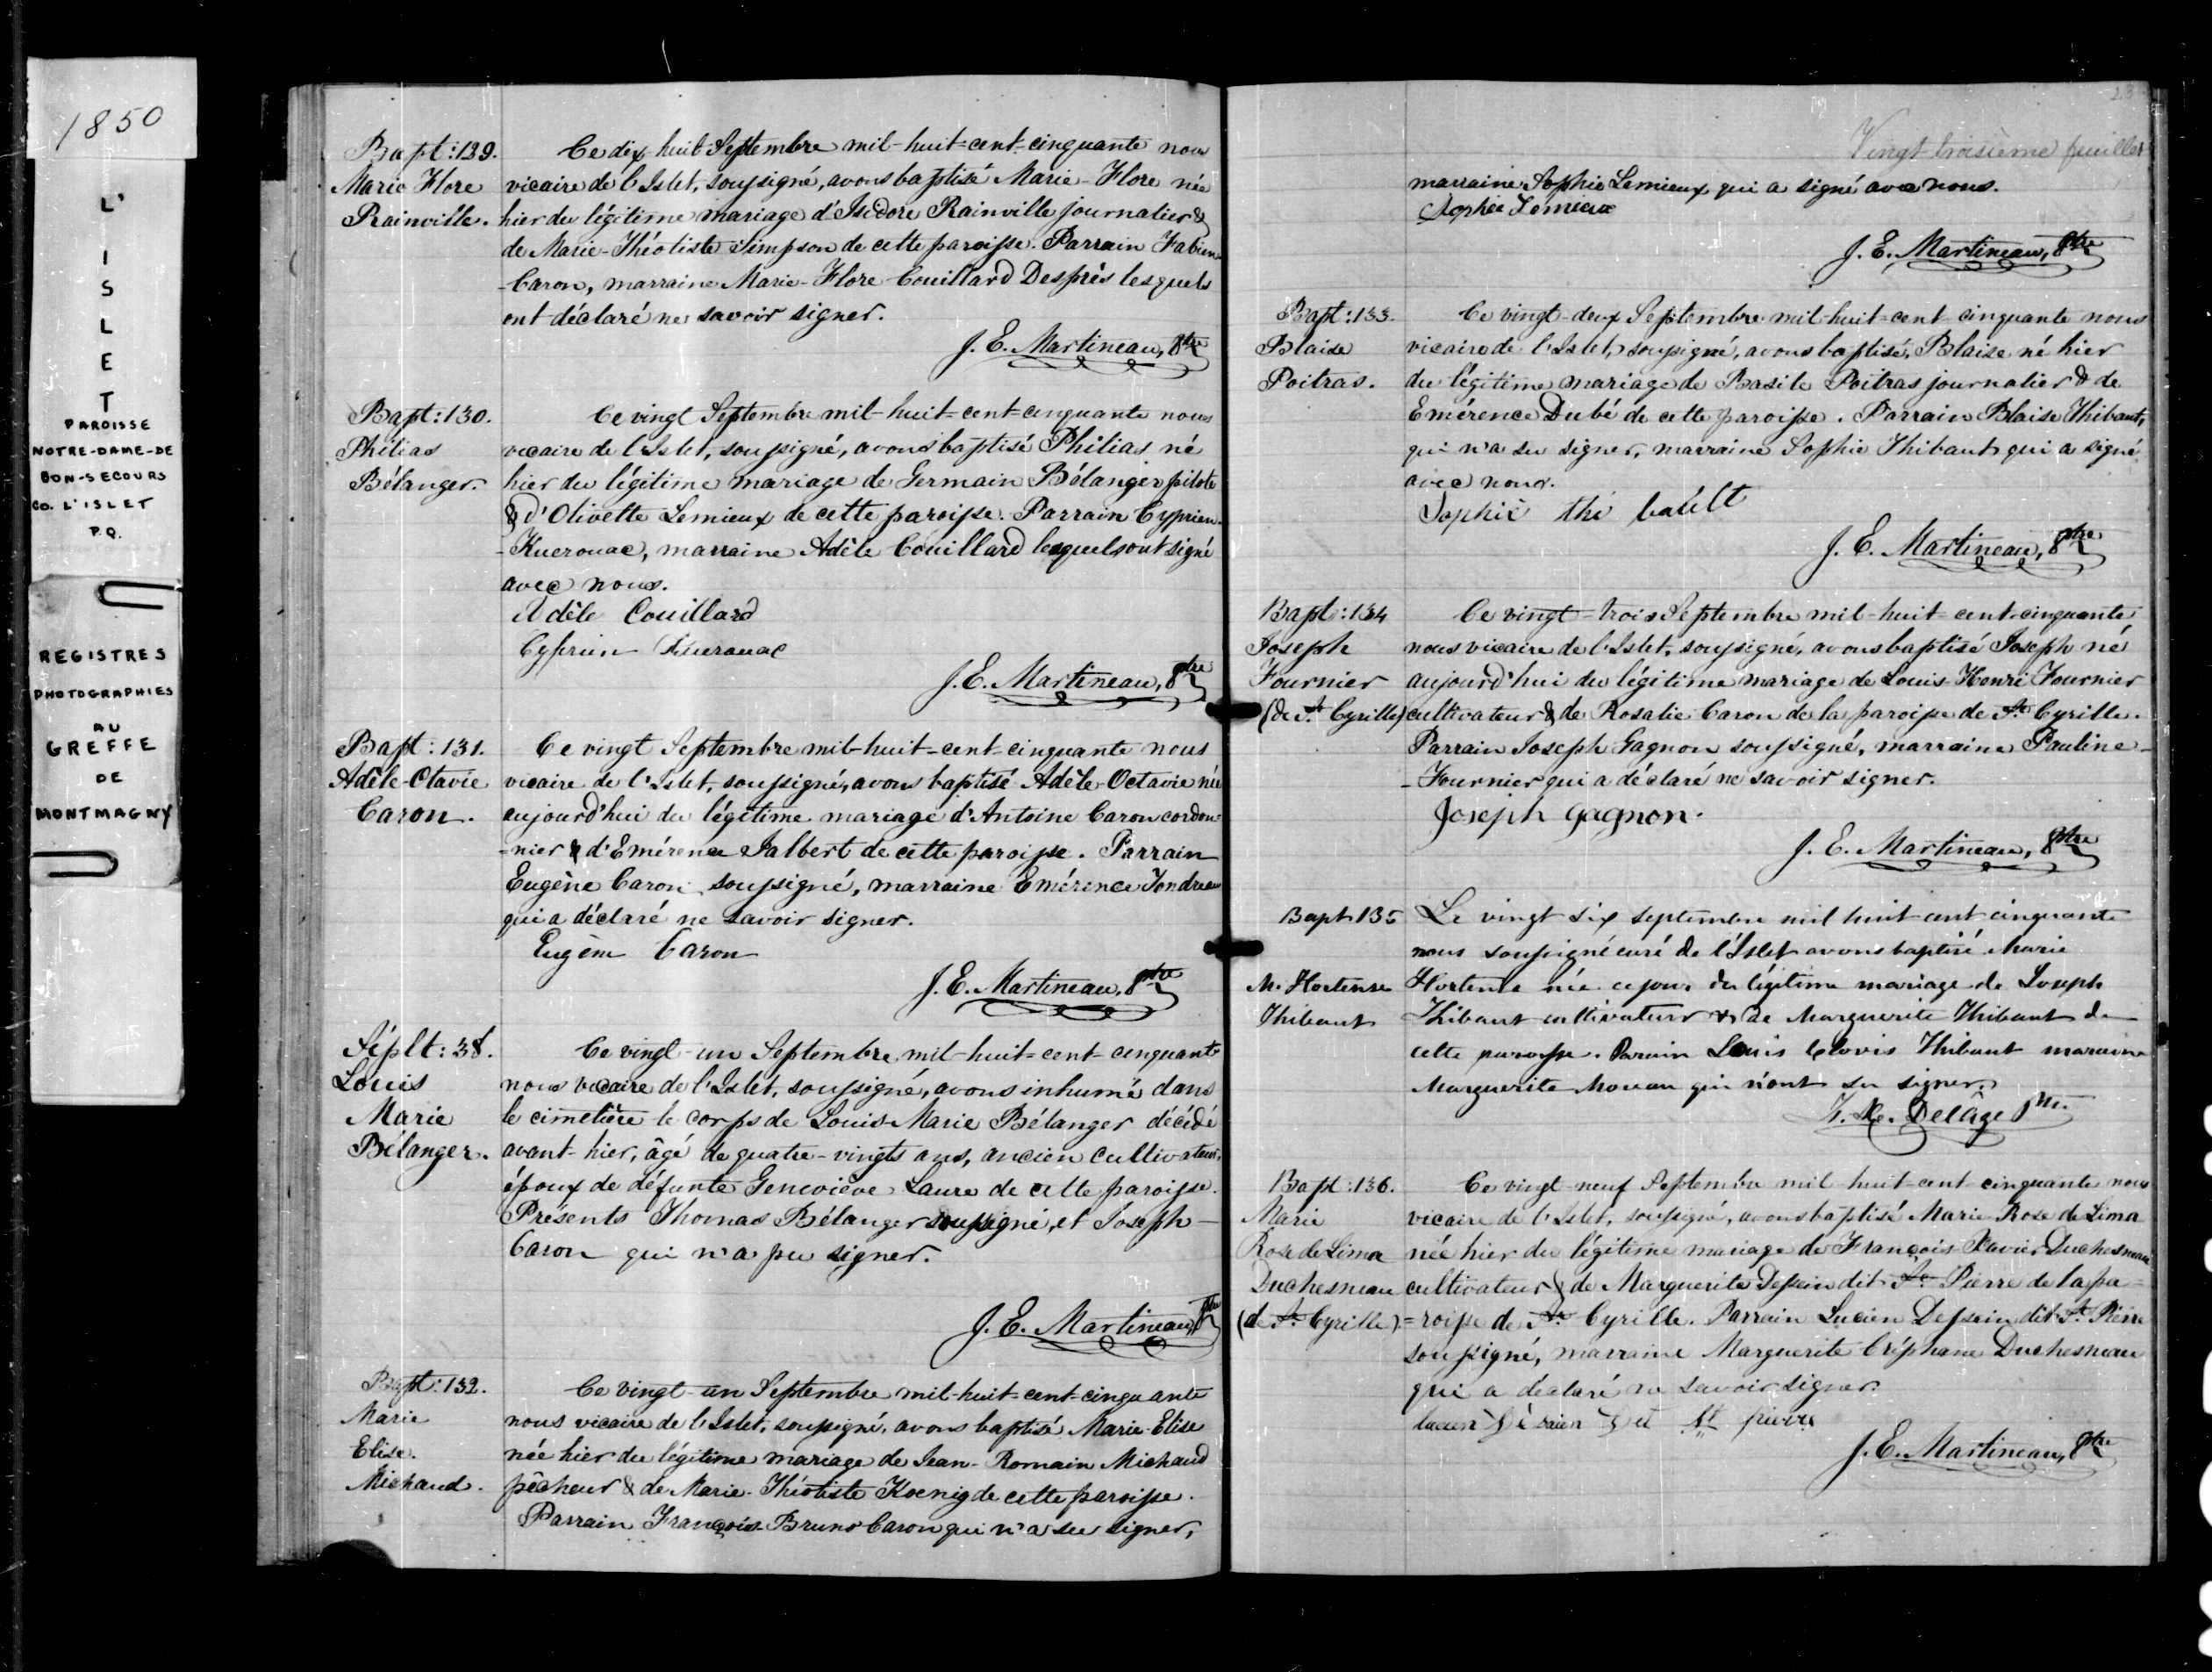 1850
L'
I
S
L
E
T
PAROISSE
NOTRE-DAME-DE
BON-SECOURS
CO. L'ISLET
P.Q.
REGISTRES
PHOTOGRAPHIES
AU
GREFFE
DE
MONTMAGNY
Bapt: 129.
Marie Flore
Rainville.
Ce dix-huit Septembre mil-huit-cent-cinquante nous
vicaire de l'Islet, soussigné, avons baptisé Marie-Flore née
hier du légitime mariage d'Isidore Rainville journalier &
de Marie-Théotiste Simpson de cette paroisse. Parrain Fabien
-Caron, marraine Marie-Flore Couillard Després lesquels
ont déclaré ne savoir signer.
J. E. Martineau, Ptre
Bapt: 130.
Philias
Bélanger.
Ce vingt Septembre mil-huit-cent-cinquante nous
vicaire de l'Islet, soussigné, avons baptisé Philias né
hier du légitime mariage de Germain Bélanger pilote
& d'Olivette Lemieux de cette paroisse. Parrain Cyprien-
-Kuerouac, marraine Adèle Couillard lesquels ont signé
avec nous.
Adèle Couillard
Cyprien Kuerouac
J. E. Martineau, Ptre
Bapt: 131.
Adèle-Otavie
Caron.
Ce vingt Septembre mil-huit-cent-cinquante nous
vicaire de l'Islet, soussigné, avons baptisé Adèle-Octavie née
aujourd'hui du légitime mariage d'Antoine Caron cordon-
-nier & d'Emérence Jalbert de cette paroisse. Parrain
Eugène Caron soussigné, marraine Emérence Tondreau
qui a déclaré ne savoir signer.
Eugène Caron
J. E. Martineau, Ptre
Séplt: 38.
Louis
Marie
Bélanger.
Ce vingt-un Septembre mil-huit-cent-cinquante
nous vicaire de l'Islet, soussigné, avons inhumé dans
le cimetière le corps de Louis-Marie Bélanger décédé
avant-hier, âgé de quatre-vingts ans, ancien cultivateur,
époux de défunte Geneviève Laure de cette paroisse.
Présents Thomas Bélanger soussigné, et Joseph-
Caron qui n'a pu signer.
J. E. Martineau Ptre
Bapt: 132.
Marie
Elise.
Michaud.
Ce vingt-un Septembre mil-huit-cent-cinquante
nous vicaire de l'Islet, soussigné, avons baptisé Marie-Elise
née hier du légitime mariage de Jean-Romain Michaud
pêcheur & de Marie-Théotiste Koenig de cette paroisse.
Parrain François-Bruno Caron qui n'a su signer,
23
Vingt-troisième feuillet
marraine Sophie Lemieux qui a signé avec nous.
Sophie Lemieux
J. E. Martineau, Ptre
Bapt: 133.
Blaise
Poitras.
Ce vingt-deux Septembre mil-huit-cent-cinquante nous
vicaire de l'Islet, soussigné, avons baptisé Blaise né hier
du légitime mariage de Basile Poitras journalier & de
Emérence Dubé de cette paroisse. Parrain Blaise Thibaut,
qui n'a su signer, marraine Sophie Thibaut qui a signé
avec nous.
Sophie thi bault
J. E. Martineau, Ptre
Bapt: 134
Joseph
Fournier
(de St Cyrille)
Ce vingt-trois Septembre mil-huit-cent-cinquante
nous vicaire de l'Islet, soussigné, avons baptisé Joseph né
aujourd'hui du légitime mariage de Louis-Henri Fournier
cultivateur & de Rosalie Caron de la paroisse de St Cyrille.
Parrain Joseph Gagnon soussigné, marraine Pauline-
-Fournier qui a déclaré ne savoir signer.
Joseph Gagnon.
J. E. Martineau, Ptre
Bapt 135
M. Hortense
Thibaut
Le vingt six septembre mil huit cent cinquante
nous soussigné curé de l'Islet avons baptisé Marie
Hortense née ce jour du légitime mariage de Joseph
Thibaut cultivateur & de Marguerite Thibaut de
cette paroisse. Parain Louis Clovis Thibaut maraine
Marguerite Moreau qui n'ont su signer.
Delâge Ptre
Bapt: 136.
Marie
Rose de Lima
Duchesneau
(de St Cyrille)
Ce vingt-neuf Septembre mil-huit-cent-cinquante nous
vicaire de l'Islet, soussigné, avons baptisé Marie Rose de Lima
née hier du légitime mariage de François-Xavier Duchesneau
cultivateur & de Marguerite Dessein dit St Pierre de la pa-
=roisse de St Cyrille. Parrain Lucien Dessein dit St Pierre
soussigné, marraine Marguerite Duchesneau
qui a déclaré ne savoir signer.
lucien Désaien dit St pierre
J. E. Martineau, Ptre